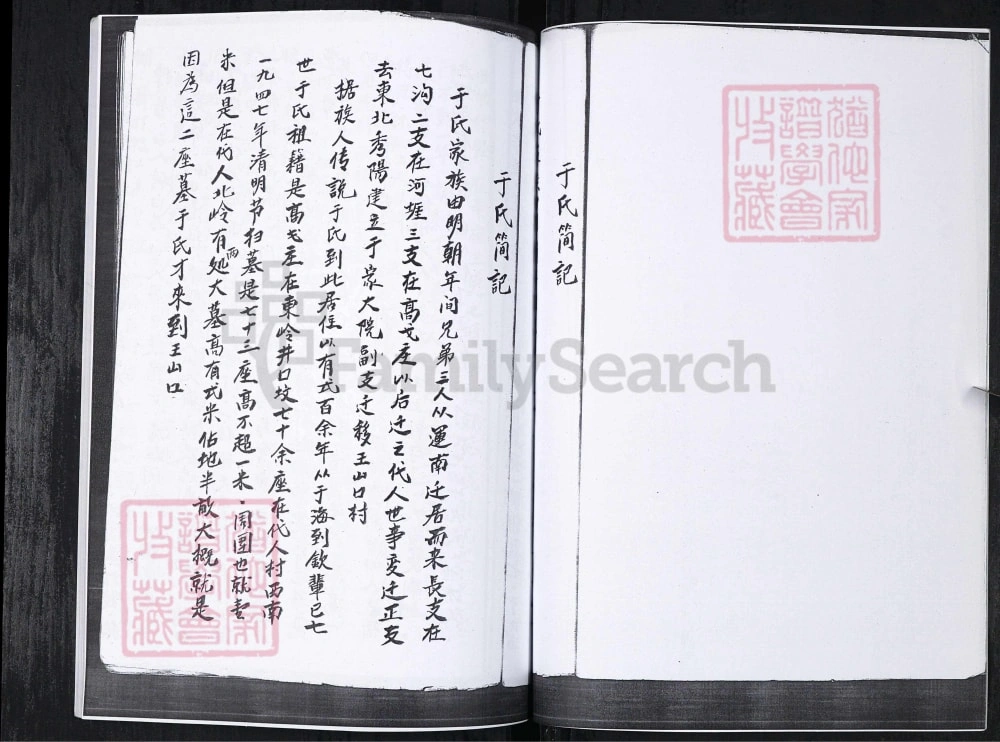 于氏簡記
于氏簡記
于氏家族由明朝年间兄弟三人从運南迁居而来長支在
七沟二支在河堐三支在高戈庄以后迁之代人世事变迁正支
去東北秀陽建立于家大院副支迁移王山口村
据族人传說于氏到此居住以有弍百余年从于海到欽輩已七
世于氏祖籍是高戈庄在東岭井口坟七十余座在代人村西南
一九四七年清明节扫墓是七十三座高不超一米.周围也就壹
米但是在代人北岭有两处大墓高有弍米佔地半畝大概就是
因為這二座墓于氏才來到王山口
FamilySearch
譜學會
收藏
譜學會
收藏